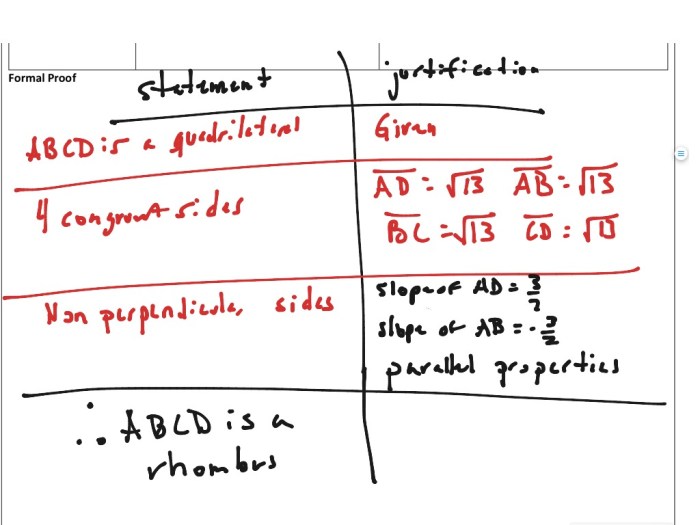 Formal Proof
statement
justification
ABCD is a quadrilateral
Given
4 congruent sides
AD = √13 AB = √13
BC = √13 CD = √13
Non perpendicular sides
slope of AD = 3/2
slope of AB = -3/2
parallel properties
∴ ABCD is a
rhombus